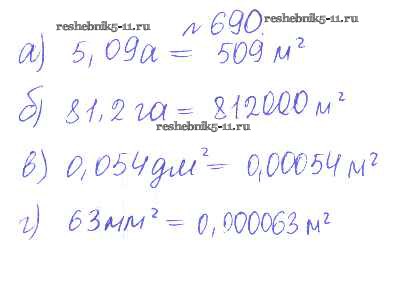 reshebnik5-11.ru
№ 690.
reshebnik5-11.ru
а) 5,09а = 509 м²
б) 81,2 га = 812000 м²
reshebnik5-11.ru
в) 0,054дм² = 0,00054 м²
г) 63мм² = 0,000063 м²